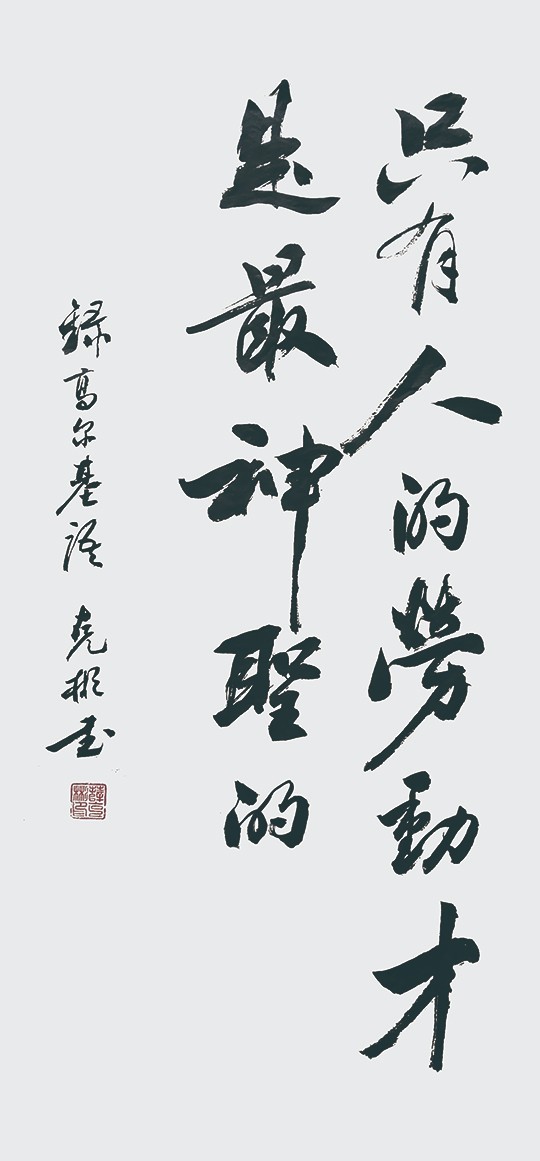 只有人的勞動才
是最神聖的
錄高尔基語 克彬书